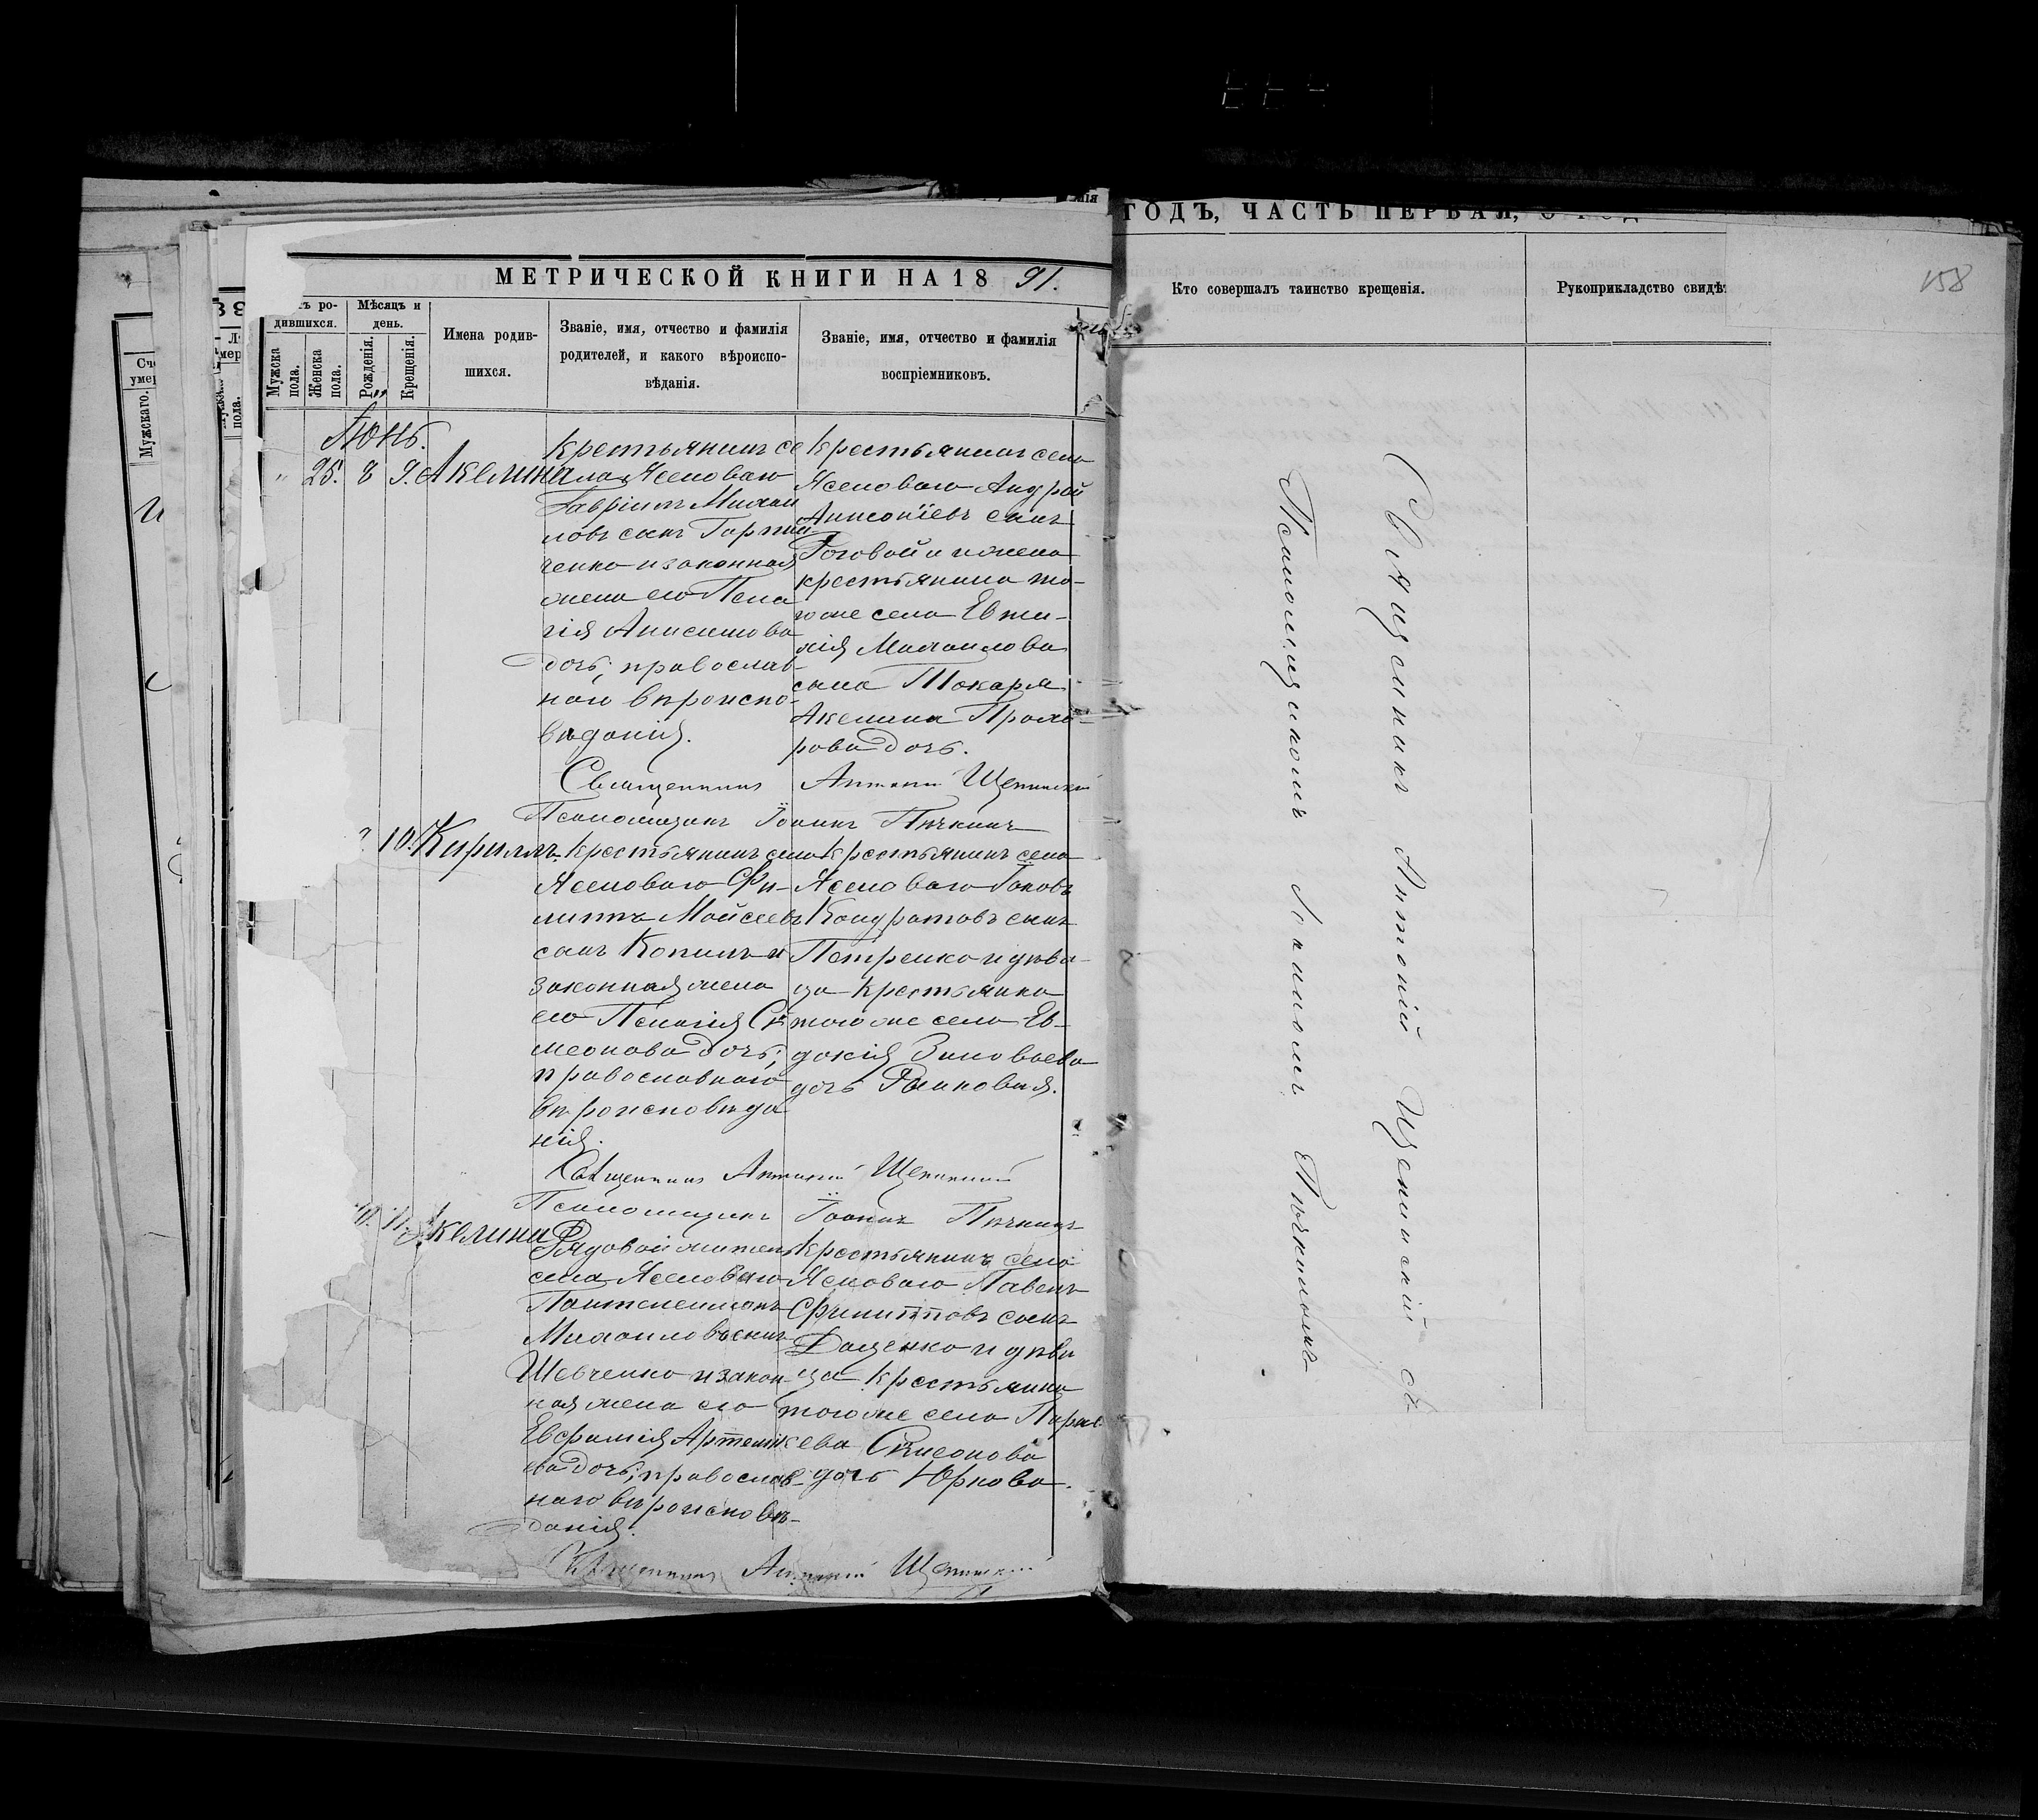 ГОДЪ, ЧАСТЬ ПЕРВАЯ, О
МЕТРИЧЕСКОЙ КНИГИ НА 18 91.
158
ро-
дившихся.
Мужска пола.
Женска пола.
Мѣсяцъ и день.
Рожденія.
Крещенія.
Имена родив-
шихся.
Званіе, имя, отчество и фамилія
родителей, и какого вѣроиспо-
вѣданія.
Званіе, имя, отчество и фамилія
воспріемниковъ.
Кто совершалъ таинство крещенія.
Рукоприкладство свидѣ
Мужскаго.
Іюнь.
25. 8 9. Акелина
Крестьянинъ се
ла Ясеноваго
Гавріилъ Михаи
ловъ сынъ Горпин
ченко и законная
жена его Пела
гія Анисимова
дочь; православ-
наго вѣроиспо-
вѣданія.
Крестьянинъ села
Ясеноваго Андрей
сынъ
Роговой и жена
крестьянина то-
гоже села Евти-
хія Михаилова
сына Токаря
Акелина Прохо-
рова дочь.
Священникъ Антоній Щепинскій
Псаломщикъ Іоаннъ Пѣчкинъ
10. Кириллъ
Крестьянинъ села
Ясеноваго Фи-
липпъ Мойсеевъ
сынъ Копилъ и
законная жена
его Пелагія Си
меонова дочь;
православнаго
вѣроисповѣда
нія.
Крестьянинъ села
Ясеноваго Іаковъ
Кондратовъ сынъ
Петренко и дѣви-
ца крестьянка
того же села Ев-
докія Зиновьева
дочь
Священникъ Антоній Щепинскій
Псаломщикъ Іоаннъ Пѣчкинъ
11. Акелина
Рядовой житель
села Ясеноваго
Пантелеимонъ
Михаиловъ сынъ
Шевченко и закон-
ная жена его
Евфимія Артемі
ева дочь; православ-
наго вѣроисповѣ-
данія.
Крестьянинъ села
Ясеноваго Павелъ
Филипповъ сынъ
Доценко и дѣви
ца крестьянка
того же села Парас
кева Симеонова
дочь Юркова.
Священникъ Антоній Щепинскій
Священникъ Антоній Щепинскій съ
Псаломщикомъ Іоанномъ Пѣчкинымъ